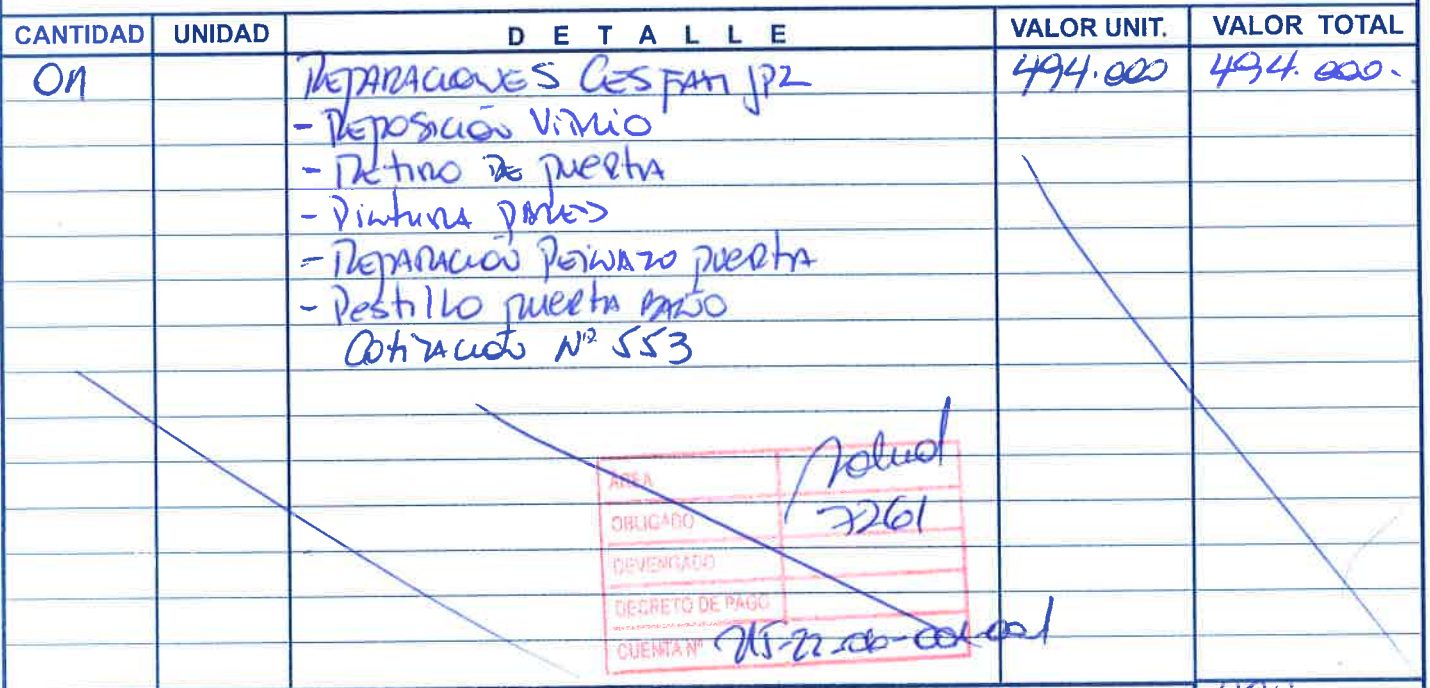 CANTIDAD UNIDAD DETALLE VALOR UNIT. VALOR TOTAL
01 REPARACIONES CESFAM JP2 494.000 494.000.
- REPOSICIÓN VIDRIO
- RETIRO DE PUERTA
- PINTURA PARED
- REPARACIÓN PEINAZO PUERTA
- Pestillo PUERTA BAÑO
COTIZACIÓN Nº 553
AREA Salud
OBLIGADO 7261
DEVENGADO
DECRETO DE PAGO
CUENTA Nº 215-22-06-001-001